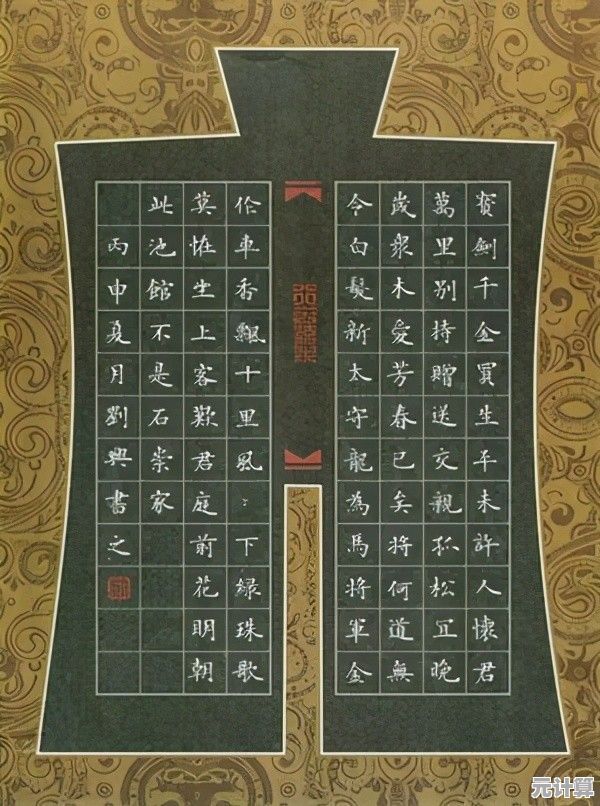 寳劍千金買生平未許人懷君
萬里別持贈送交親孤松冝晚
歲衆木愛芳春已矣將何道無
今白髮新太守龍為馬將軍金
作車香飄十里風〻下綠珠歌
莫恠坐上客歎君庭前花明朝
此池館不是石崇家
丙申夏月劉興書之
元计算